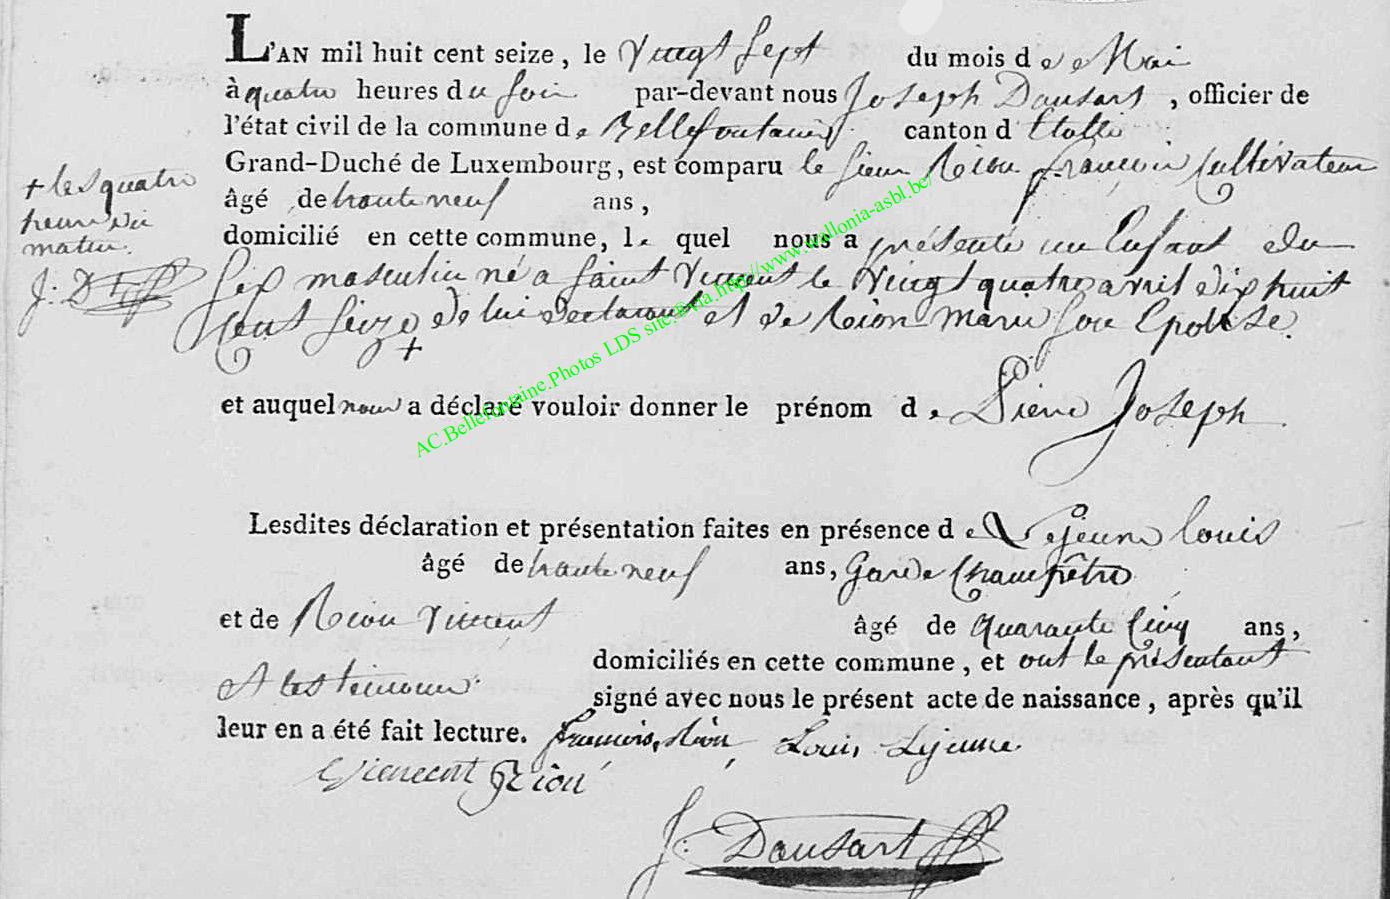 L'AN mil huit cent seize, le vingt sept du mois de Mai
à quatre heures du soir par-devant nous Joseph Dausart, officier de
l'état civil de la commune de Bellefontaine canton d'Etalle
Grand-Duché de Luxembourg, est comparu le sieur Rion françois Cultivateur
+ les quatre
heures du
matin.
J: D
âgé de trente neuf ans,
domicilié en cette commune, le quel nous a présenté un Enfant du
sex masculin né a saint Vincent le vingt quatre avril dix huit
cent seize + de lui declarant et de Rion Marie son Epouse.
et auquel nous a déclaré vouloir donner le prénom de Pierre Joseph
Lesdites déclaration et présentation faites en présence de Lejeune Louis
âgé de trente neuf ans, Garde Champêtre
et de Rion Vincent âgé de quarante cinq ans,
domiciliés en cette commune, et ont le présentant
et les témoins signé avec nous le présent acte de naissance, après qu'il
leur en a été fait lecture. francois Rion, Louis Lejeune
Viencent Rion
J: Dausart
AC.Bellefontaine.Photos LDS site.@via.http://www.wallonia-asbl.be/